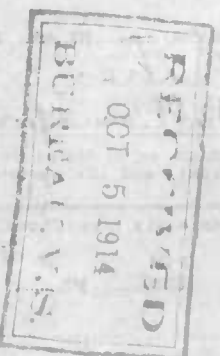 RECEIVED
OCT 5 1914
BUREAU, V. S.